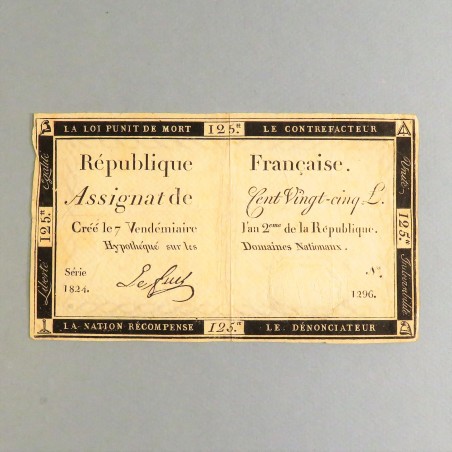 LA LOI PUNIT DE MORT 125.ᵗᵗ LE CONTREFACTEUR
Egalité 125.ᵗᵗ Liberté
République Française.
Assignat de Cent Vingt-cinq L.
Créé le 7 Vendémiaire l'an 2eme de la République.
Hypothéqué sur les Domaines Nationaux.
Série Nº
1824. 1296.
Unité 125.ᵗᵗ Indivisibilité
LA NATION RÉCOMPENSE 125.ᵗᵗ LE DÉNONCIATEUR